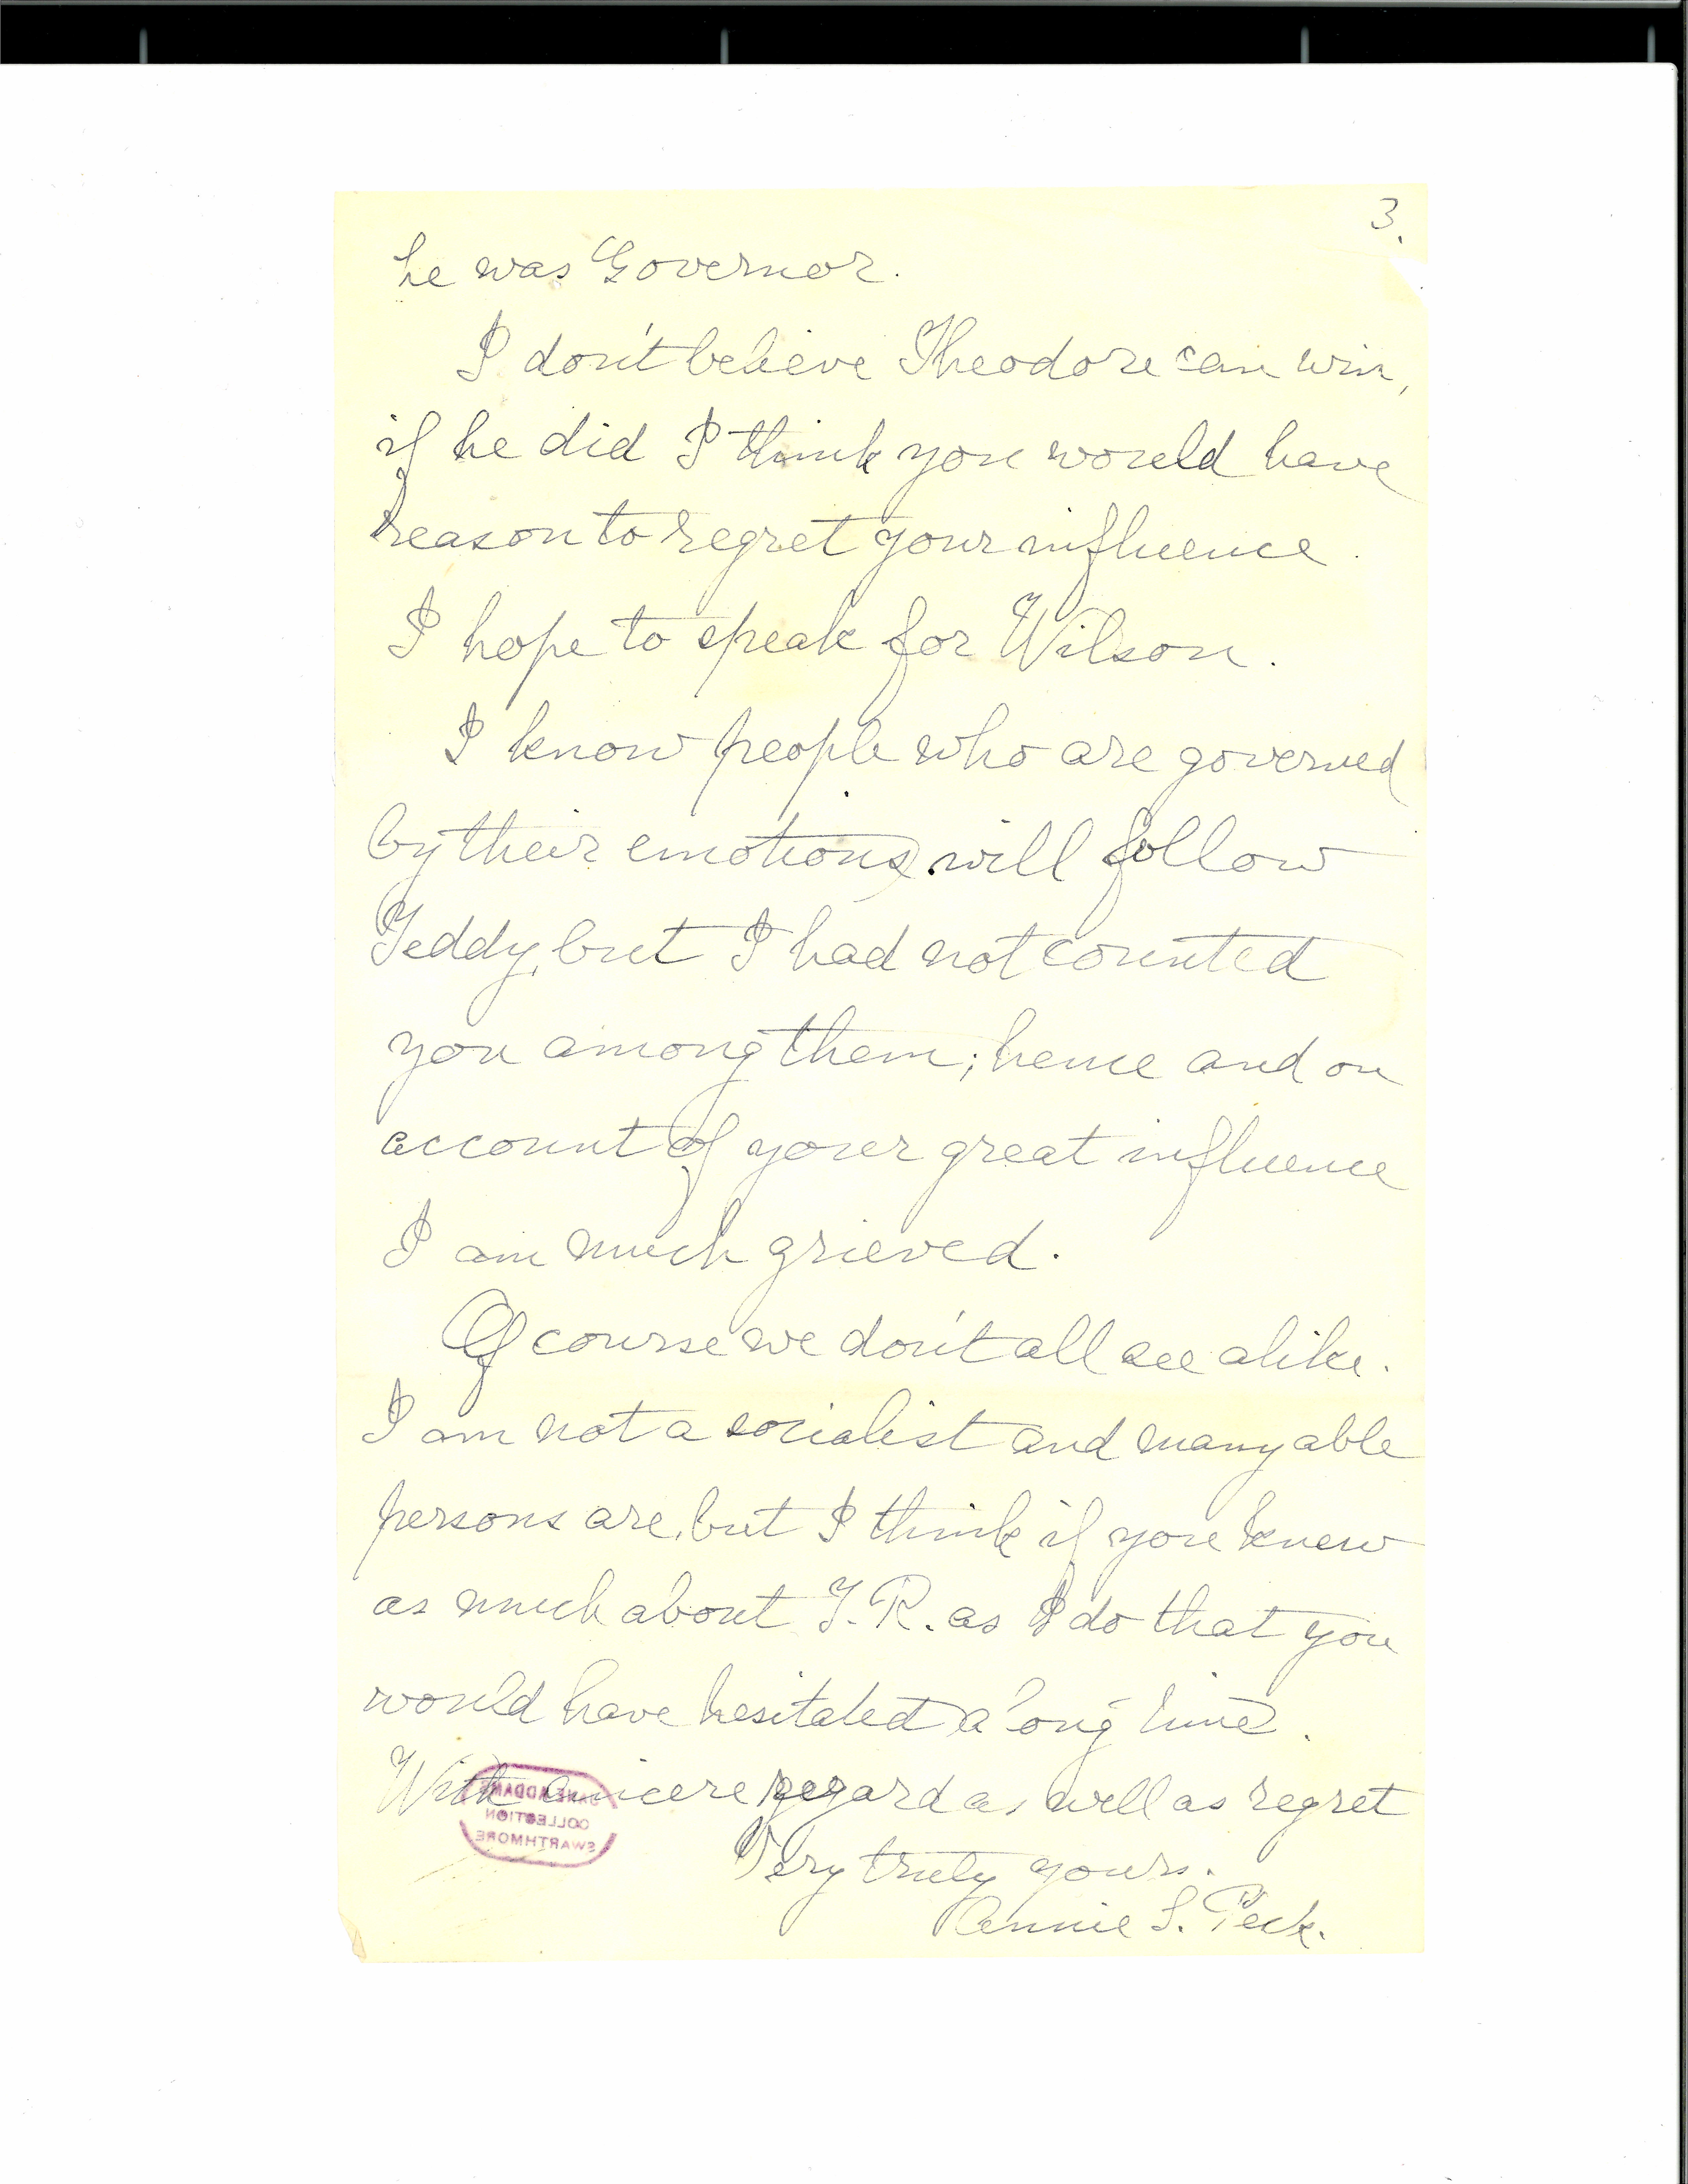 3.
he was Governor.
I don't believe Theodore can win,
if he did I think you would have
reason to regret your influence.
I hope to speak for Wilson.
I know people who are governed
by their emotions will follow
Teddy, but I had not counted
you among them; hence and on
account of your great influence
I am much grieved.
Of course we don't all see alike.
I am not a socialist and many able
persons are, but I think if you knew
as much about T.R. as I do that you
would have hesitated a long time.
With sincere regard as well as regret
JANE ADDAMS
COLLECTION
SWARTHMORE
Very truly yours.
Annie S. Peck.